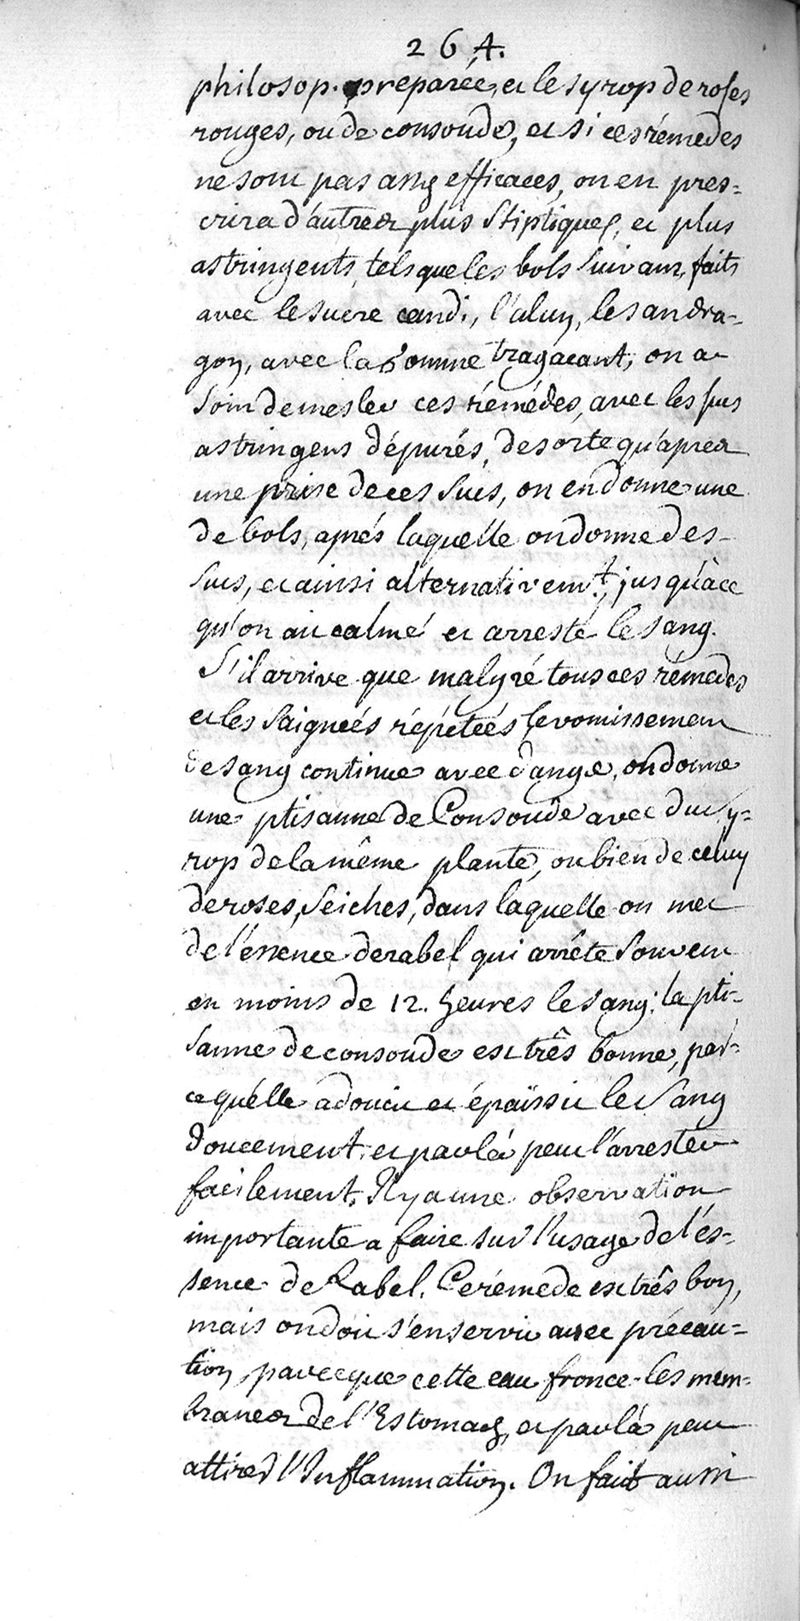 264.
philosop. preparée, et le syrop de roses
rouges, ou de consoude, et si ces rémedes
ne sont pas assez efficaces, on en pres=
crira d'autres plus stiptiques, et plus
astringents, tels que les bols suivans, faits
avec le sucre candi, l'alun, le sandra-
gon, avec la Gomme tragacant, on a
soin de mesler ces rémédes, avec les sucs
astringens dépurés, de sorte qu'aprés
une prise de ces sucs, on en donne une
de bols, aprés laquelle on donne des
sucs, et ainsi alternativemt. jusqu'à ce
qu'on ait calmé et arresté le sang.
S'il arrive que malgré tous ces rémedes
et les saigneés répeteés le vomissement
de sang continue avec danger, on donne
une ptisanne de Consoude avec du sy=
rop de la même plante, ou bien de celuy
de roses, seiches, dans laquelle on met
de l'éssence de rabel qui arrête souvent
en moins de 12. heures le sang; la pti-
sanne de consoude est três bonne, par-
ce qu'élle adoucit et épaissit le sang
doucement, et par là peut l'arrester
facilement. Il y a une observation
importante a faire sur l'usage de l'és-
sence de Rabel. Ce rémede est três bon,
mais on doit s'en servir avec précau=
tion, parce que cette eau fronce les mem-
branes de l'Estomac, et par là peut
attirer l'Inflammation. On fait aussi